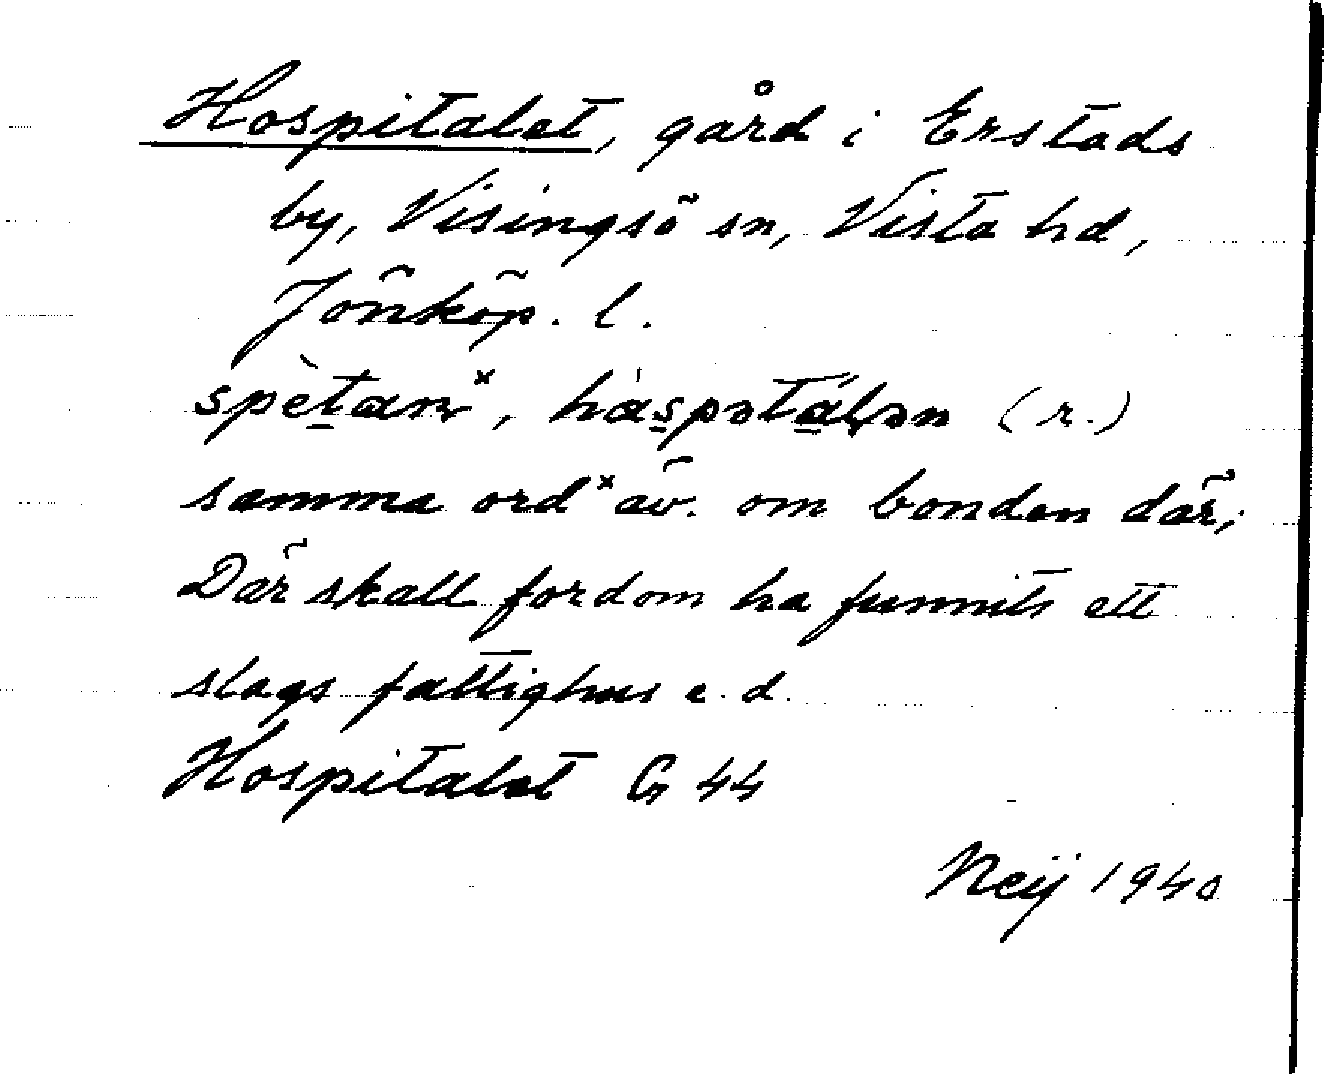 Hospitalet, gård i Erstads
by, Visingsö sn, Vista hd,
Jönköp. l.
spètanˣ, hàspətálən (r.)
samma ordˣ äv. om bonden där;
Där skall fordom ha funnits ett
slags fattighus e. d.
Hospitalet G 44
Neij 1940